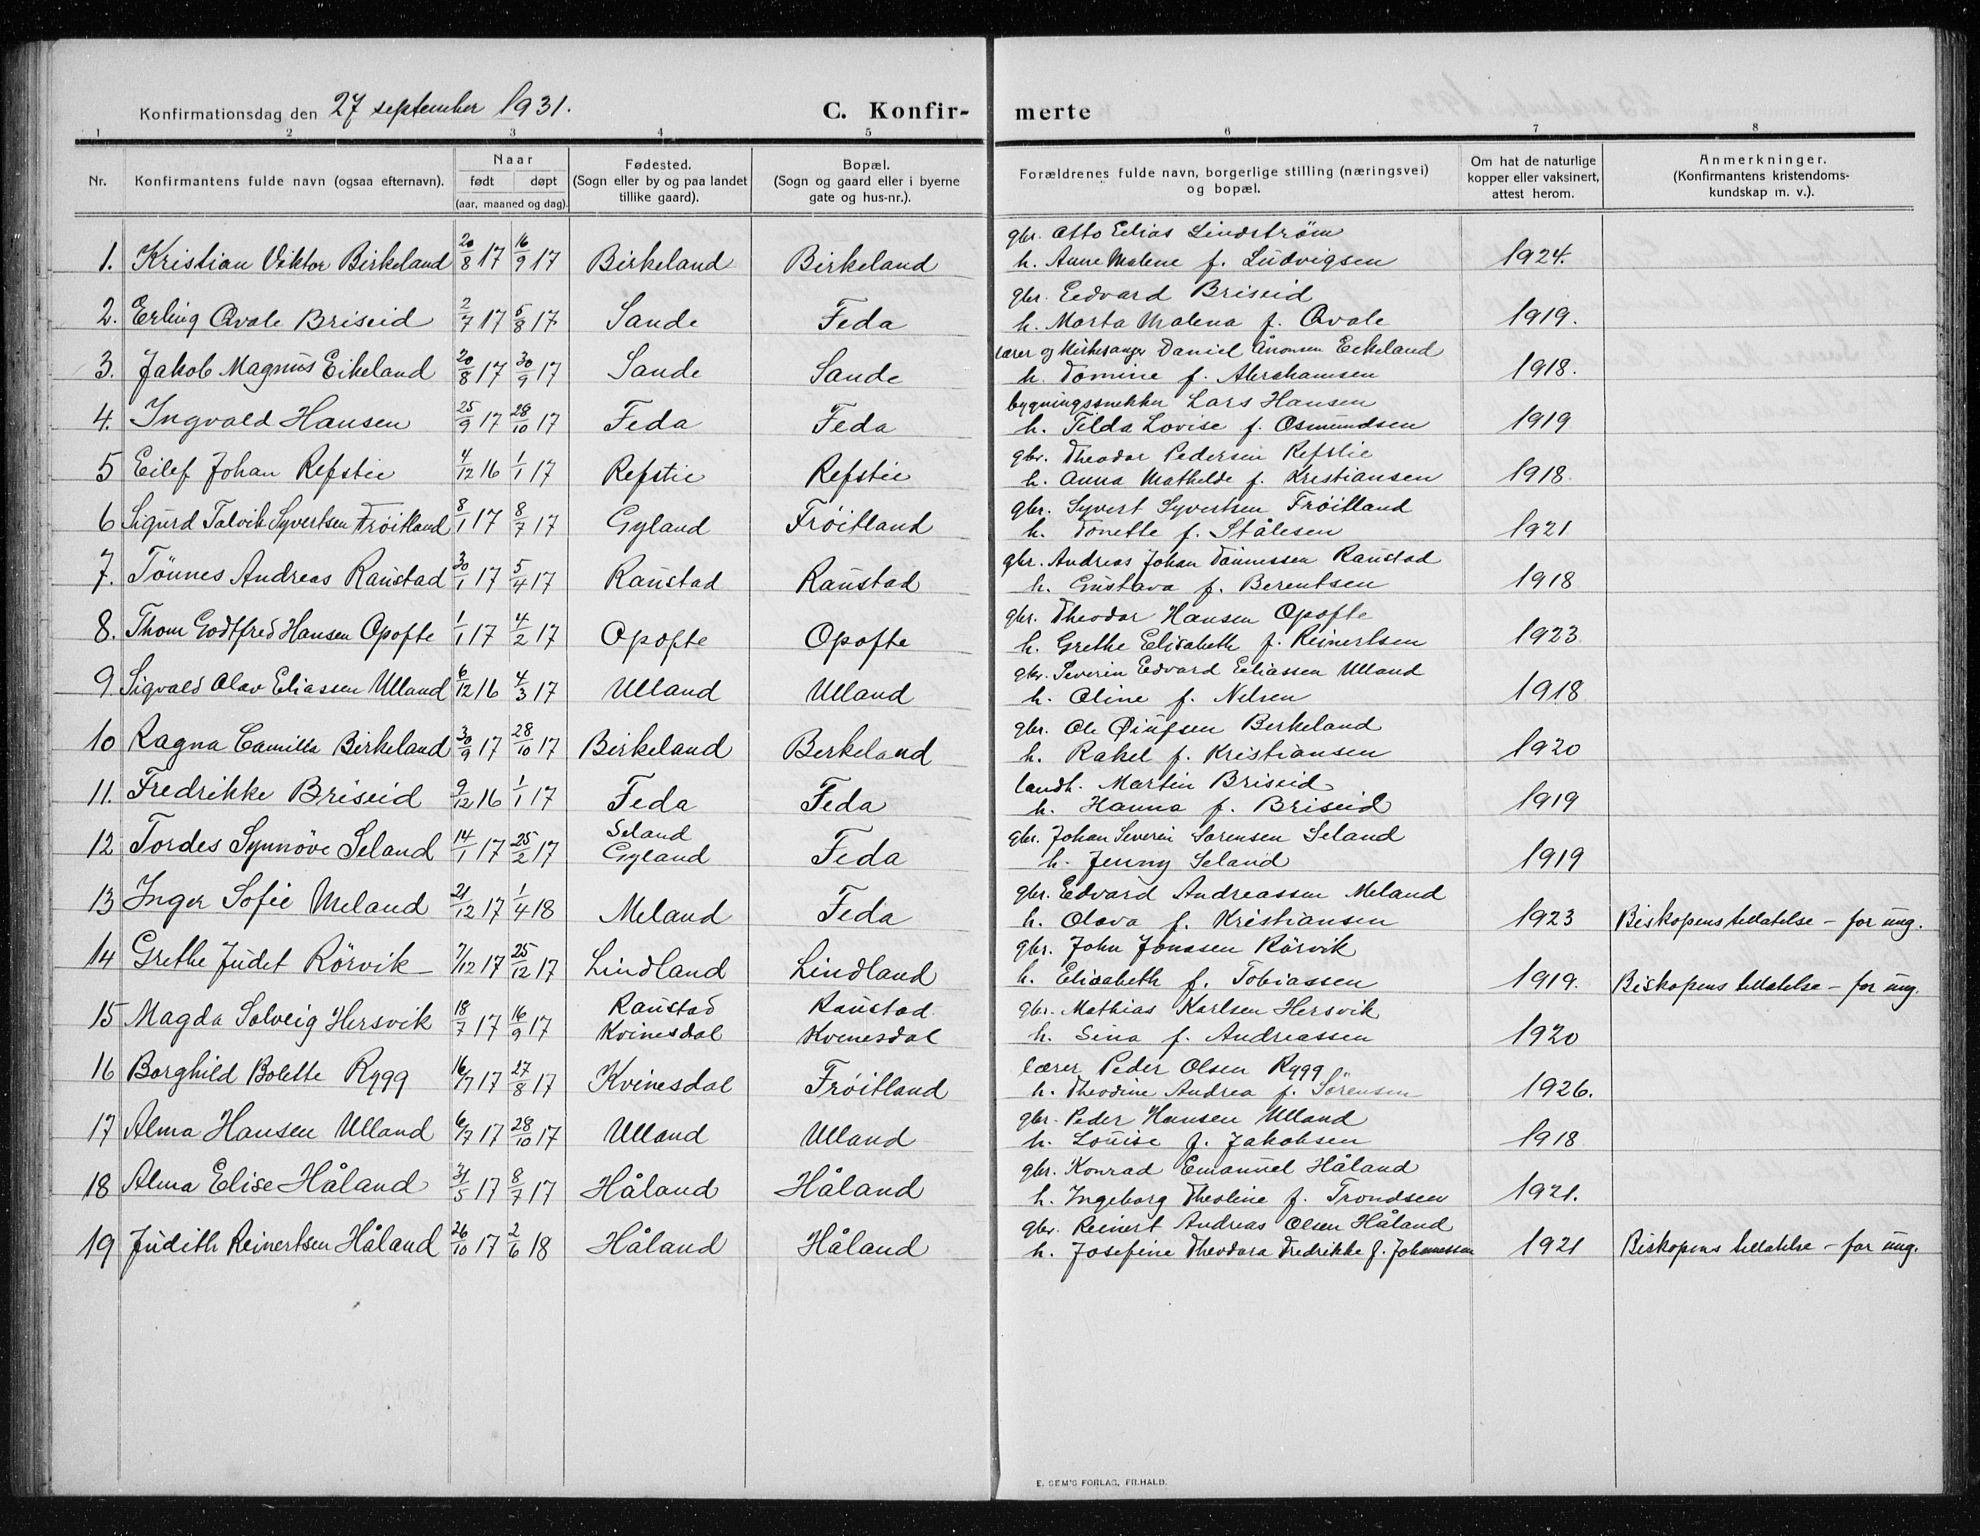 Konfirmationsdag den 27 september 1931. C. Konfir- merte
1 2 3 4 5 6 7 8
Nr. Konfirmantens fulde navn (ogsaa efternavn). Naar født døpt (aar, maaned og dag). Fødested. (Sogn eller by og paa landet tillike gaard). Bopæl. (Sogn og gaard eller i byerne gate og hus-nr.). Forældrenes fulde navn, borgerlige stilling (næringsvei) og bopæl. Om hat de naturlige kopper eller vaksinert, attest herom. Anmerkninger. (Konfirmantens kristendoms- kundskap m. v.).
gbr. Otto Elias Lindstrøm
1. Kristian Viktor Birkeland 20/8 17 16/9 17 Birkeland Birkeland h. Anne Malene f. Ludvigsen 1924.
gbr. Eedvard Briseid
2. Erling Qvale Briseid 2/7 17 5/8 17 Sande Feda h. Marta Malena f. Qvale 1919.
lærer og kirkesanger Daniel Ånonsen Eikeland
3. Jakob Magnus Eikeland 20/8 17 30/9 17 Sande Sande h. Tomine f. Abrahamsen 1918.
bygningssnekker Lars Hansen
4. Ingvald Hansen 25/9 17 28/10 17 Feda Feda h. Tilda Lovise f. Osmundsen 1919
gbr. Theodor Pedersen Refstie
5 Eilef Johan Refstie 4/12 16 1/1 17 Refstie Refstie h. Anna Mathilde f. Kristiansen 1918.
gbr. Syvert Syvertsen Frøitland
6 Sigurd Talvik Syvertsen Frøitland 8/1 17 8/7 17 Gyland Frøitland h. Tonette f. Stålesen 1921
gbr. Andreas Johan Tønnessen Raustad
7. Tønnes Andreas Raustad 30/1 17 5/4 17 Raustad Raustad h. Gustava f. Berentsen 1918
gbr. Theodor Hansen Opofte
8. Thom Godtfred Hansen Opofte 1/1 17 4/2 17 Opofte Opofte h. Grethe Elisabeth f. Reinertsen 1923
gbr. Severin Edvard Eliassen Ulland
9 Sigvald Olav Eliassen Ulland 6/12 16 4/3 17 Ulland Ulland h. Oline f. Nelsen 1918
gbr. Ole Øiufsen Berkeland
10 Ragna Camilla Birkeland 30/9 17 28/10 17 Birkeland Berkeland h. Rakel f. Kristiansen 1920
landh. Martin Briseid
11. Fredrikke Briseid 9/12 16 1/1 17 Feda Feda h. Hanna f. Briseid 1919
gbr. Johan Severin Sørensen Seland
12 Tordes Synnøve Seland 14/1 17 25/2 17 Seland Gyland Feda h. Jenny Seland 1919
gbr. Edvard Andreassen Meland
13 Inger Sofie Meland 21/12 17 1/4 18 Meland Feda h. Olava f. Kristiansen 1923 Biskopens tillatelse - for ung.
gbr. John Jonassen Rørvik
14 Grethe Judet Rörvik 7/12 17 25/12 17 Lindland Lindland h. Elisabeth f. Tobiassen 1919. Biskopens tillatelse - for ung.
gbr. Mathias Karlsen Hersvik
15 Magda Solveig Hersvik 18/7 17 16/9 17 Raustad Kvinesdal Raustad Kvinesdal h. Sina f. Andreassen 1920
lærer Peder Olsen Rygg
16 Borghild Bolette Rygg 16/7 17 27/8 17 Kvinesdal Frøitland h. Theodine Andrea f. Sørensen 1926.
gbr. Peder Hansen Ulland
17 Alma Hansen Ulland 6/7 17 28/10 17 Ulland Ulland h. Louise f. Jakobsen 1918
gbr. Konrad Emanuel Håland
18 Alma Elise Håland 31/5 17 8/7 17 Håland Håland h. Ingeborg Theoline f. Trondsen 1921.
gbr. Reinert Andreas Olsen Håland
19 Judith Reinertsen Håland 26/10 17 2/6 18 Håland Håland h. Josefine Theodora Fredrikke f. Johannessen 1921 Biskopens tillatelse - for ung.
E. SEM'S FORLAG, FR.HALD.